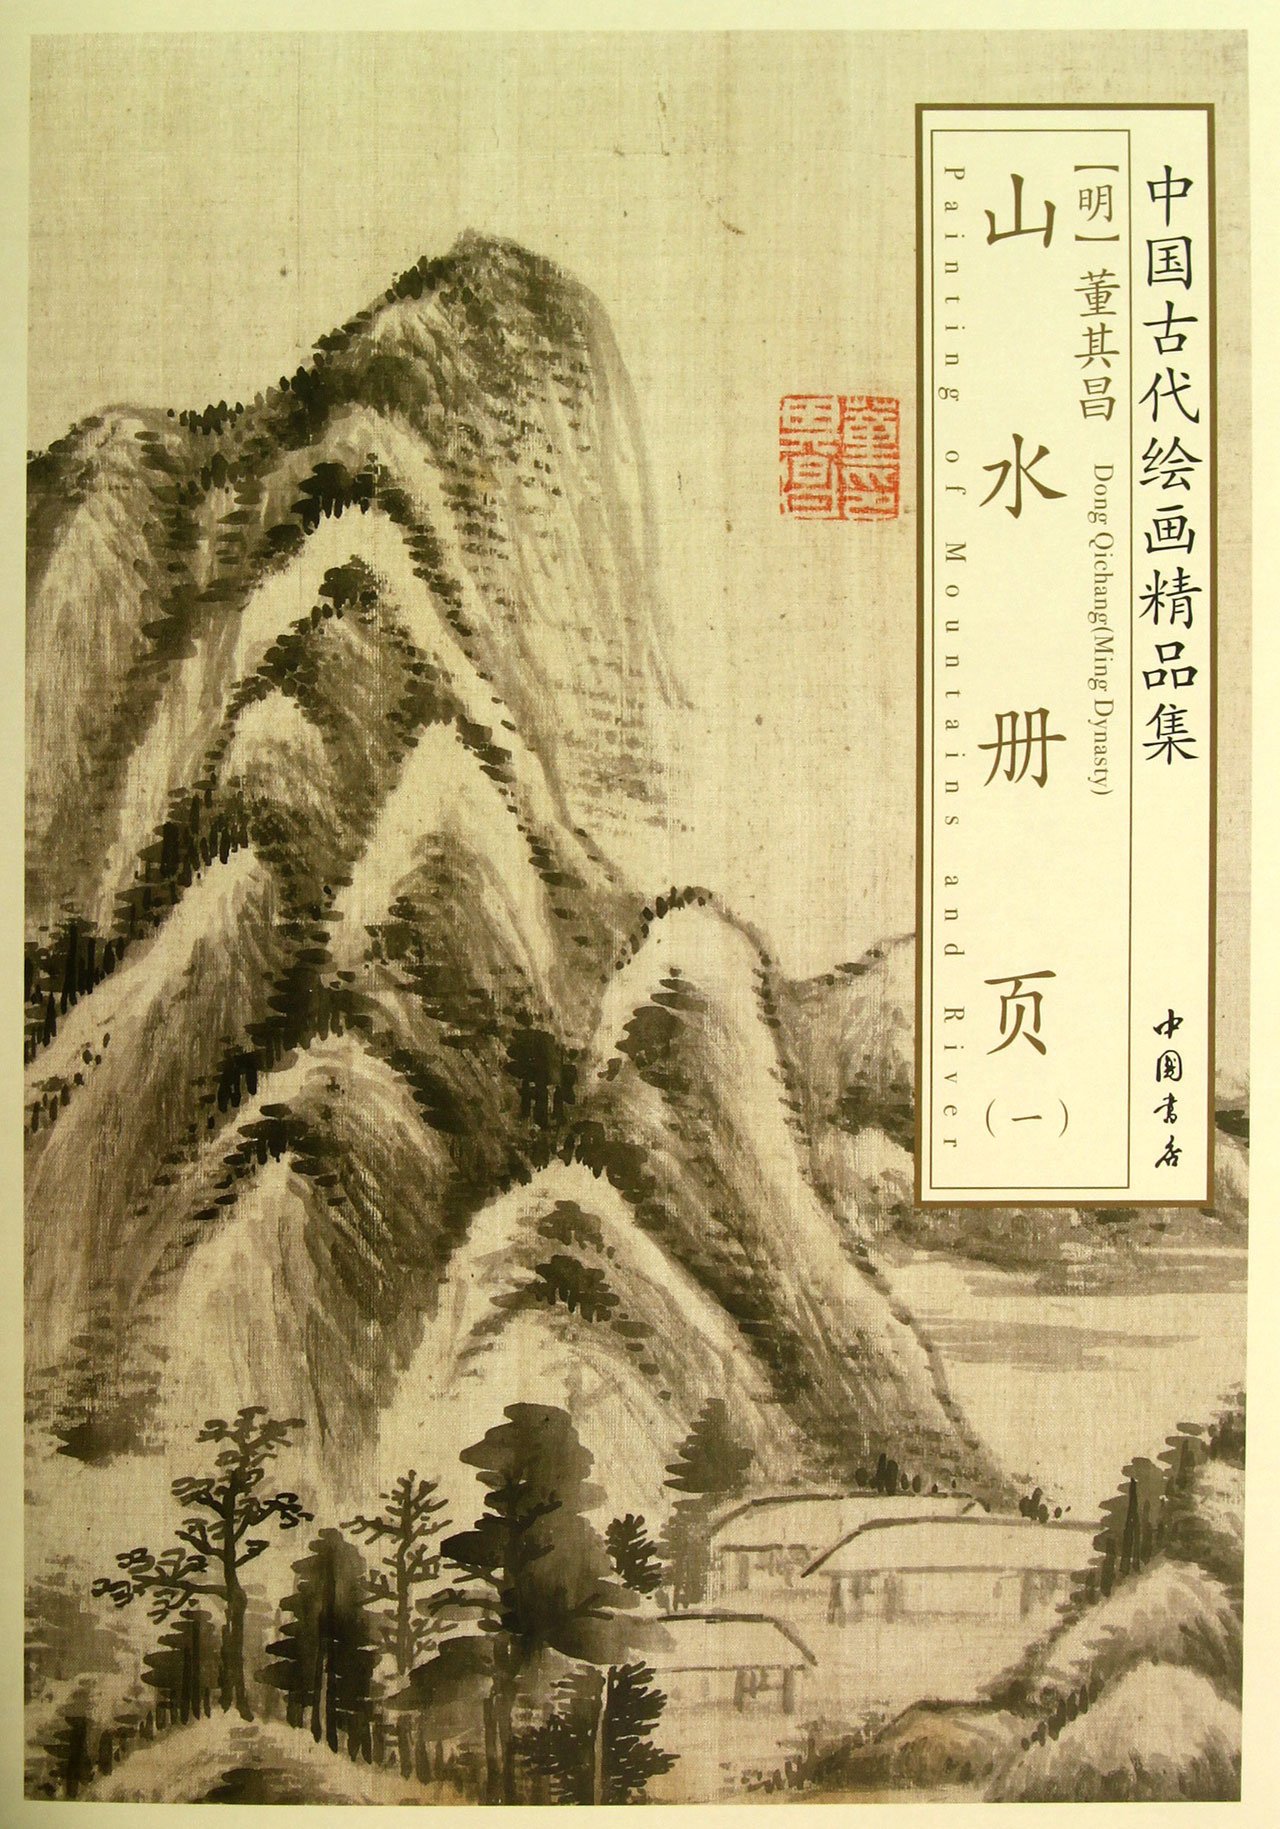 中国古代绘画精品集
中國书店
【明】董其昌 Dong Qichang(Ming Dynasty)
山水册页(一)
Painting of Mountains and River